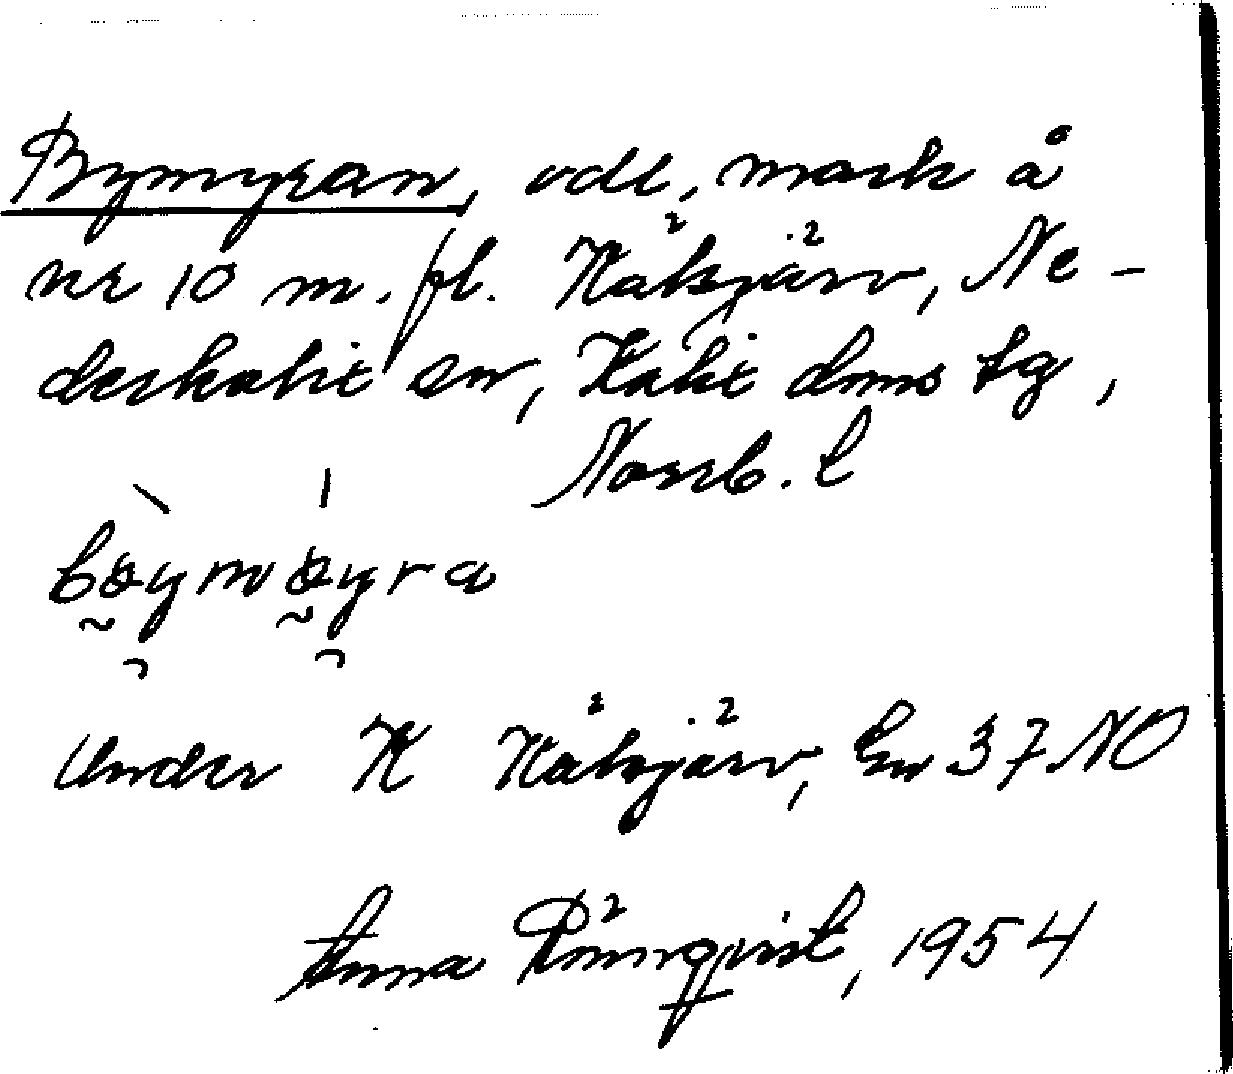 Bymyran, odl. mark å
nr 10 m. fl. Kälvjärv, Ne-
derkalix sn, Kalix dms tg,
Norrb. l
bøymøyra
Under K Kälvjärv, Ev 37 NO
Anna Rönnqvist, 1954